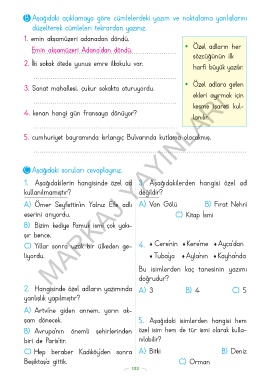 B Aşağıdaki açıklamaya göre cümlelerdeki yazım ve noktalama yanlışlarını
düzelterek cümleleri tekrardan yazınız.
1. emin akşamüzeri adanadan döndü.
Emin akşamüzeri Adana'dan döndü.
2. İki sokak ötede yunus emre ilkokulu var.
3. Sanat mahallesi, çukur sokakta oturuyordu.
4. kenan hangi gün fransaya dönüyor?
5. cumhuriyet bayramında kırlangıç Bulvarında kutlama olacakmış.
• Özel adların her
sözcüğünün ilk
harfi büyük yazılır.
• Özel adlara gelen
ekleri ayırmak için
kesme işareti kul-
lanılır.
C Aşağıdaki soruları cevaplayınız.
1. Aşağıdakilerin hangisinde özel ad
kullanılmamıştır?
A) Ömer Seyfettin'in Yalnız Efe adlı
eserini arıyordu.
B) Bizim kediye Pamuk ismi çok yakı-
şır bence.
C) Yıllar sonra uzak bir ülkeden ge-
liyordu.
2. Hangisinde özel adların yazımında
yanlışlık yapılmıştır?
A) Artvin'e giden annem, yarın ak-
şam dönecek.
B) Avrupa'nın önemli şehirlerinden
biri de Paris'tir.
C) Hep beraber Kadıköy'den sonra
Beşiktaş'a gittik.
3. Aşağıdakilerden hangisi özel ad
değildir?
A) Van Gölü B) Fırat Nehri
C) Kitap İsmi
4. ♦ Ceren'in ♦ Kerem'e ♦ Ayça'dan
♦ Tuba'ya ♦ Ayla'nın ♦ Kayhan'da
Bu isimlerden kaç tanesinin yazımı
doğrudur?
A) 3 B) 4 C) 5
5. Aşağıdaki isimlerden hangisi hem
özel isim hem de tür ismi olarak kulla-
nılabilir?
A) Bitki B) Deniz
C) Orman
133
MARKAJ YAYINLARI